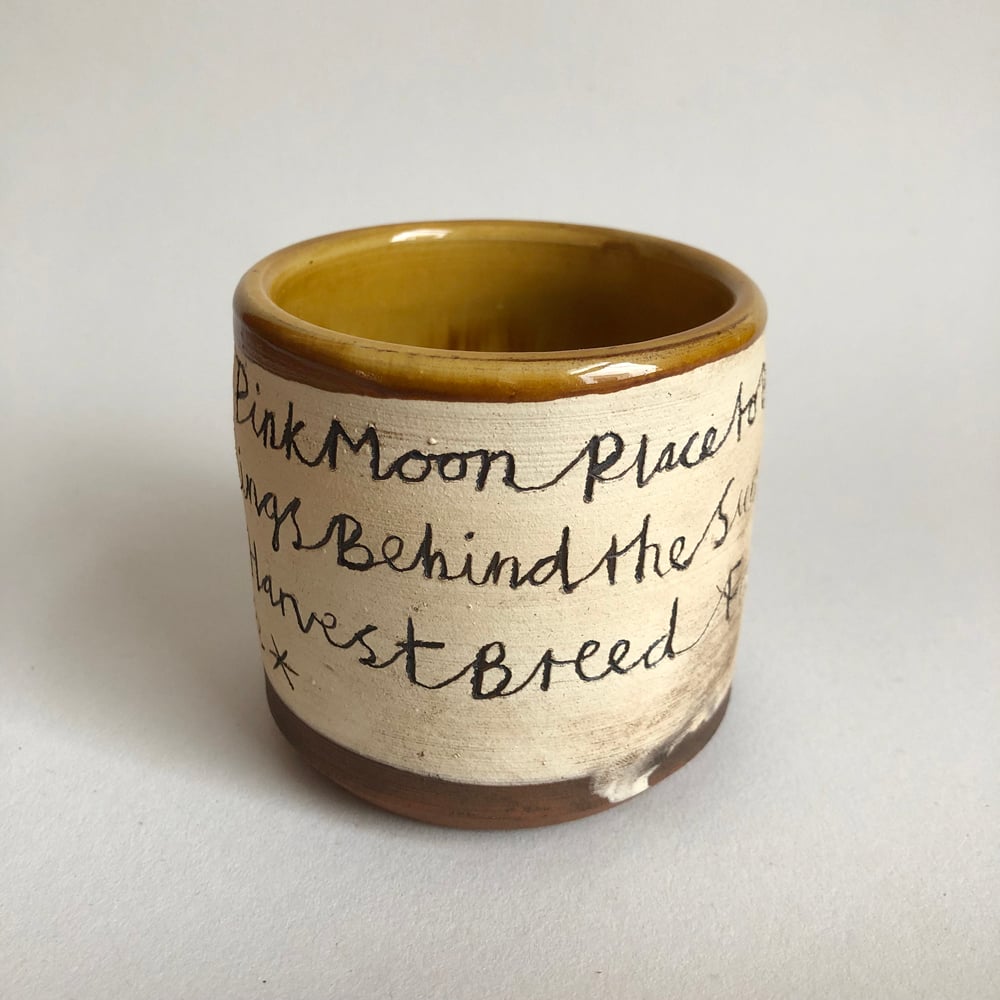 Pink Moon Place to
ings Behind the
Harvest Breed
*